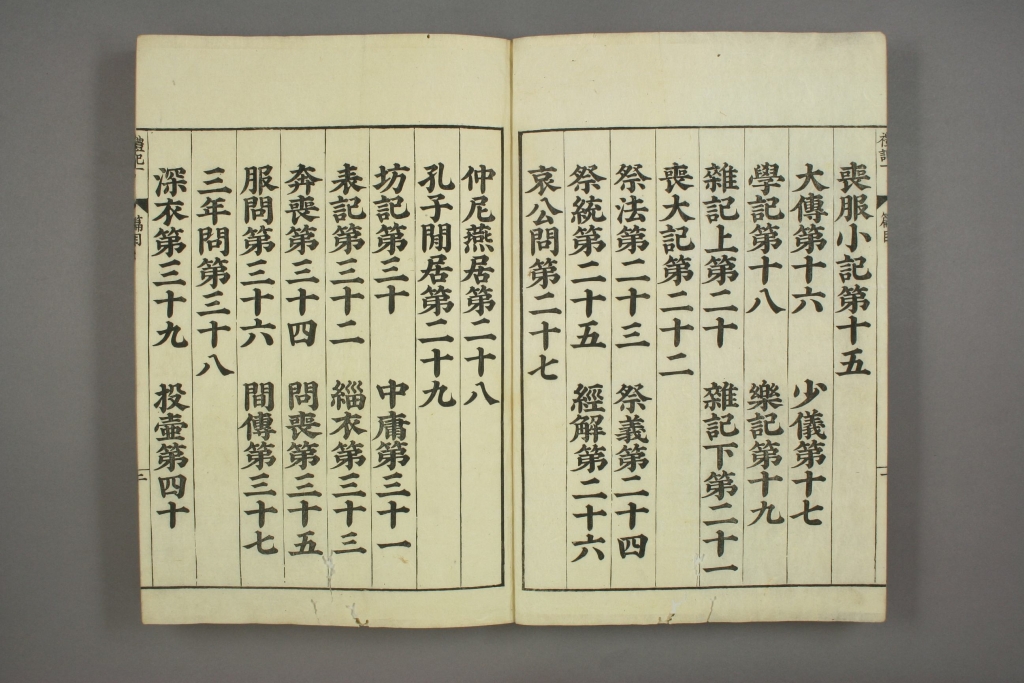 喪服小記第十五
大傳第十六 少儀第十七
學記第十八 樂記第十九
雜記上第二十 雜記下第二十一
喪大記第二十二
祭法第二十三 祭義第二十四
祭統第二十五 經解第二十六
哀公問第二十七
仲尼燕居第二十八
孔子閒居第二十九
坊記第三十 中庸第三十一
表記第三十二 緇衣第三十三
奔喪第三十四 問喪第三十五
服問第三十六 間傳第三十七
三年問第三十八
深衣第三十九 投壷第四十